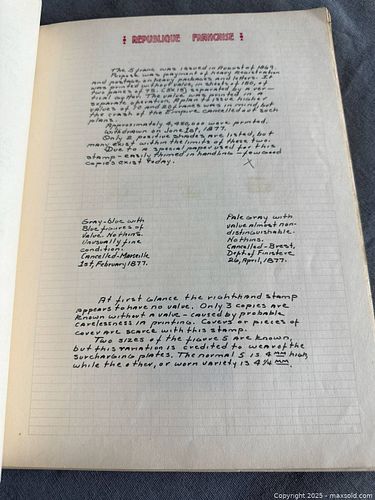 REPUBLIQUE FRANCAISE
The 5 franc was issued in August of 1869.
Purpose was payment of heavy registration
and postage on heavy packages and letters. It
was printed without value, in sheets of 150, of
two panes of 75. (5x15) separated by a ver-
tical gutter. The value was printed in a
separate operation. A plan to issue higher
values of 10 and 20 francs was in mind, but
the crash of the Empire cancelled out such
plans.
Approximately 4,480,000 were printed.
Withdrawn on June 1st, 1877.
Only 2 positive shades are listed, but
many exist within the limits of these two.
Due to a special paper used for this
stamp - easily thinned in handling - few good
copies exist today.
X
Gray-blue with
Blue figures of
Value. No thins.
Unusually fine
condition.
Cancelled-Marseille
1st, February 1877.
Pale Gray with
value almost non-
distinguishable.
No thins.
Cancelled-Brest,
Dept. of Finistere
26, April, 1877.
At first glance the righthand stamp
appears to have no value. Only 3 copies are
known without a value - caused by probable
carelessness in printing. Covers or pieces of
cover are scarce with this stamp.
Two sizes of the figure 5 are known,
but this variation is credited to wear of the
surcharging plates. The normal 5 is 4 MM high,
while the other, or worn variety is 4 1/4 MM.
Copyright 2025 - maxsold.com